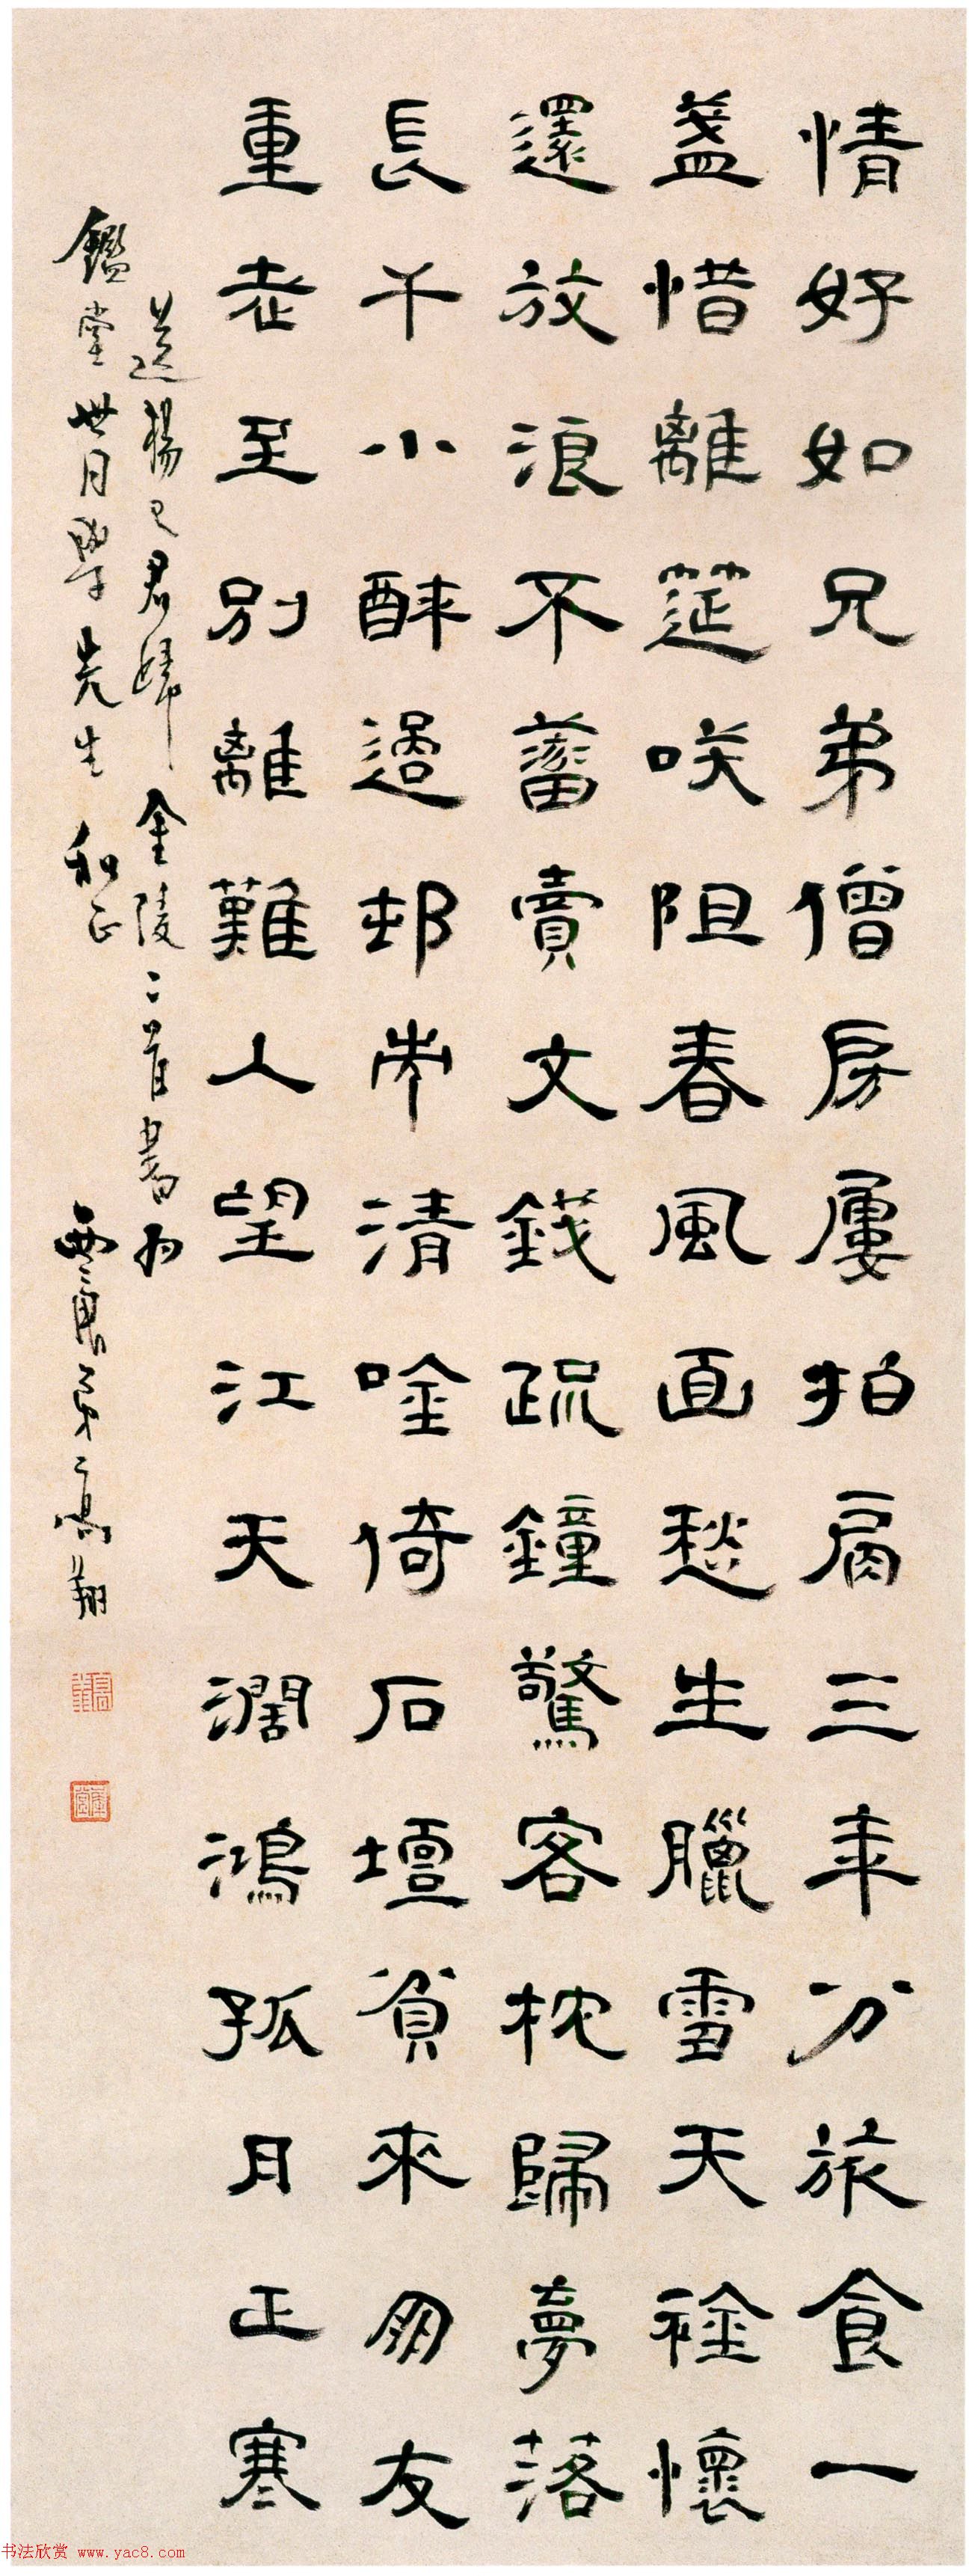 情好如兄弟僧房屢拍肩三年分旅食一
盞惜離筵咲阻春風面愁生臘雪天襟懷
還放浪不蓄賣文錢疏鐘驚客枕歸夢落
長干小酔過邨市清唫倚石壇貧來朋友
重老至別離難人望江天濶鴻孤月正寒
送楊已君歸金陵二首書為
鑑堂世同學先生和正 西唐弟高翔
书法欣赏 www.yac8.com